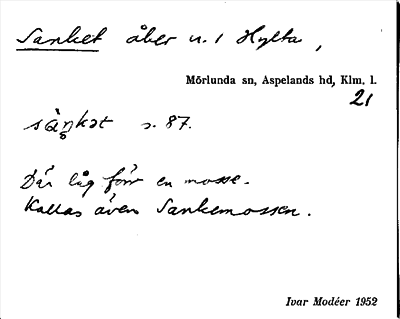 Sanket åker n. 1 Hylta,
Mörlunda sn, Aspelands hd, Klm. l.
21
sàŋ̥kət s. 87.
Där låg förr en mosse.
Kallas även Sankemossen.
Ivar Modéer 1952